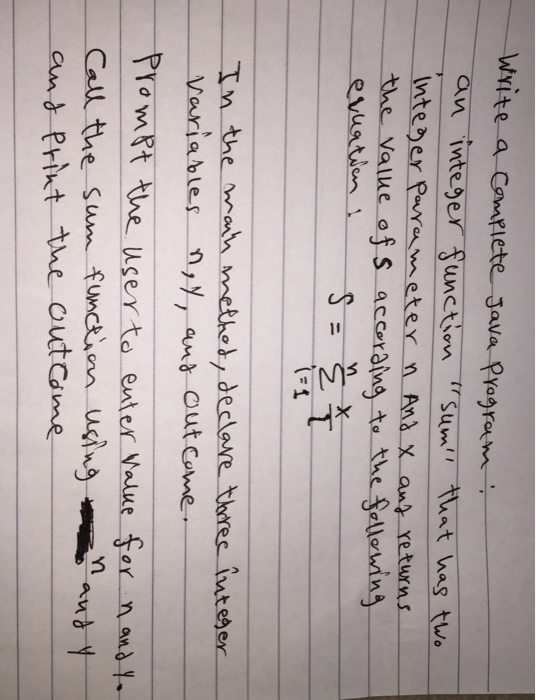 Write a complete Java program:
an integer function "sum" that has two
integer parameter n And x and returns
the value of s according to the following
equation:
S = n Σ i=1 i^x
In the main method, declare three integer
variables n, y, and outcome.
Prompt the user to enter value for n and y.
Call the sum function using n and y
and print the outcome